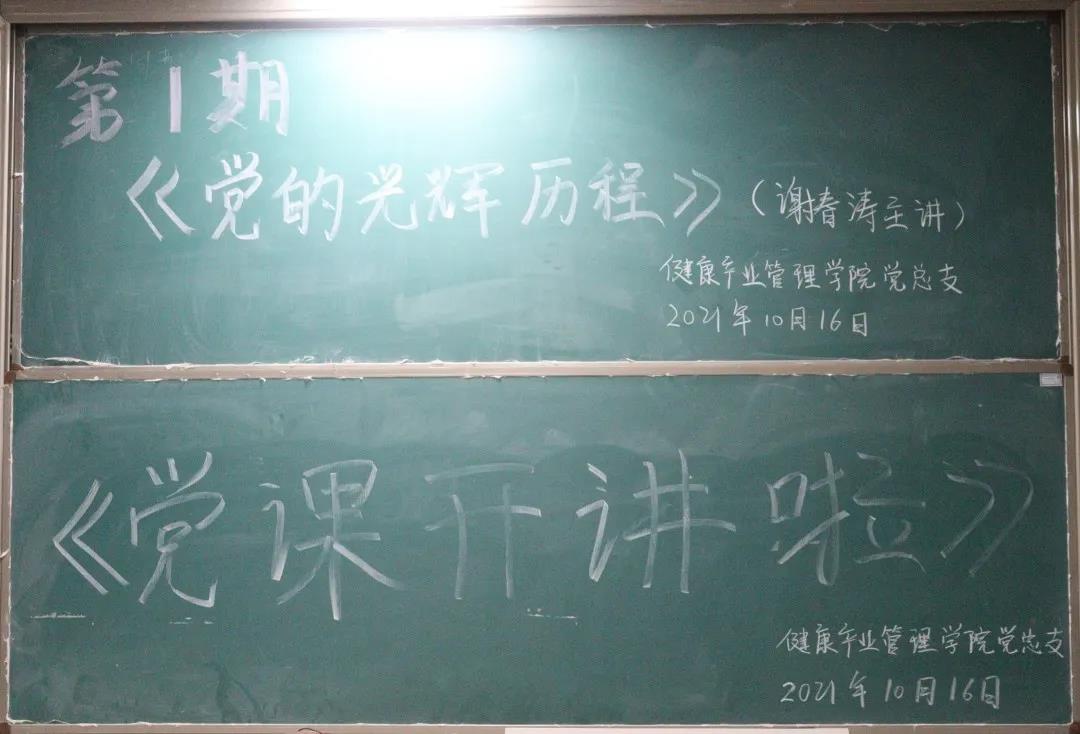 第1期
《党的光辉历程》（谢春涛主讲）
健康产业管理学院党总支
2021年10月16日
《党课开讲啦》
健康产业管理学院党总支
2021年10月16日